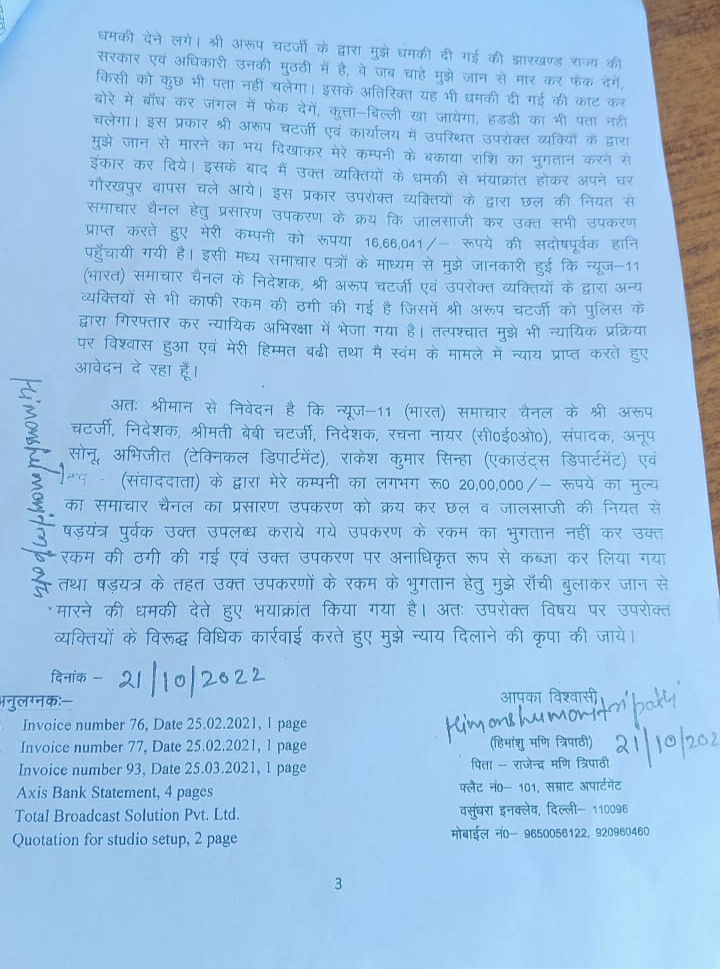 धमकी देने लगे। श्री अरूप चटर्जी के द्वारा मुझे धमकी दी गई की झारखण्ड राज्य की
सरकार एवं अधिकारी उनकी मुठठी में है, वे जब चाहे मुझे जान से मार कर फेक देगें,
किसी को कुछ भी पता नहीं चलेगा। इसके अतिरिक्त यह भी धमकी दी गई की काट कर
बोरे में बाँध कर जंगल में फेक देगें, कुत्ता-बिल्ली खा जायेगा, हडडी का भी पता नही
चलेगा। इस प्रकार श्री अरूप चटर्जी एवं कार्यालय में उपस्थित उपरोक्त व्यक्तियों के द्वारा
मुझे जान से मारने का भय दिखाकर मेरे कम्पनी के बकाया राशि का भुगतान करने से
इंकार कर दिये। इसके बाद मैं उक्त व्यक्तियों के धमकी से भंयाक्रांत होकर अपने घर
गौरखपुर वापस चले आये। इस प्रकार उपरोक्त व्यक्तियों के द्वारा छल की नियत से
समाचार चैनल हेतु प्रसारण उपकरण के क्रय कि जालसाजी कर उक्त सभी उपकरण
प्राप्त करते हुए मेरी कम्पनी को रूपया 16,66,041/- रूपये की सदोषपूर्वक हानि
पहुँचायी गयी है। इसी मध्य समाचार पत्रों के माध्यम से मुझे जानकारी हुई कि न्यूज-11
(भारत) समाचार चैनल के निदेशक, श्री अरूप चटर्जी एवं उपरोक्त व्यक्तियों के द्वारा अन्य
व्यक्तियों से भी काफी रकम की ठगी की गई है जिसमें श्री अरूप चटर्जी को पुलिस के
द्वारा गिरफ्तार कर न्यायिक अभिरक्षा में भेजा गया है। तत्पश्चात मुझे भी न्यायिक प्रक्रिया
पर विश्वास हुआ एवं मेरी हिम्मत बढी तथा मै स्वंम के मामले में न्याय प्राप्त करते हुए
आवेदन दे रहा हूँ।
अतः श्रीमान से निवेदन है कि न्यूज-11 (भारत) समाचार चैनल के श्री अरूप
चटर्जी, निदेशक, श्रीमती बेबी चटर्जी, निदेशक, रचना नायर (सी०ई०ओ०), संपादक, अनूप
सोनू, अभिजीत (टेक्निकल डिपार्टमेंट), राकेश कुमार सिन्हा (एकाउंट्स डिपार्टमेंट) एवं
(संवाददाता) के द्वारा मेरे कम्पनी का लगभग रू0 20,00,000/- रूपये का मुल्य
का समाचार चैनल का प्रसारण उपकरण को क्रय कर छल व जालसाजी की नियत से
षड़यंत्र पुर्वक उक्त उपलब्ध कराये गये उपकरण के रकम का भुगतान नहीं कर उक्त
रकम की ठगी की गई एवं उक्त उपकरण पर अनाधिकृत रूप से कब्जा कर लिया गया
तथा षड़यत्र के तहत उक्त उपकरणों के रकम के भुगतान हेतु मुझे राँची बुलाकर जान से
मारने की धमकी देते हुए भयाक्रांत किया गया है। अतः उपरोक्त विषय पर उपरोक्त
व्यक्तियों के विरूद्ध विधिक कार्रवाई करते हुए मुझे न्याय दिलाने की कृपा की जाये।
Himanshu mani tripathi
दिनांक - 21/10/2022
अनुलग्नकः-
Invoice number 76, Date 25.02.2021, 1 page
Invoice number 77, Date 25.02.2021, 1 page
Invoice number 93, Date 25.03.2021, 1 page
Axis Bank Statement, 4 pages
Total Broadcast Solution Pvt. Ltd.
Quotation for studio setup, 2 page
आपका विश्वासी
Himanshu mani tripathi
(हिमांशु मणि त्रिपाठी) 21/10/202
पिता - राजेन्द्र मणि त्रिपाठी
फ्लैट नं0- 101, सम्राट अपार्टमेंट
वसुंधरा इनक्लेव, दिल्ली- 110096
मोबाईल नं0- 9650056122, 920960460
3